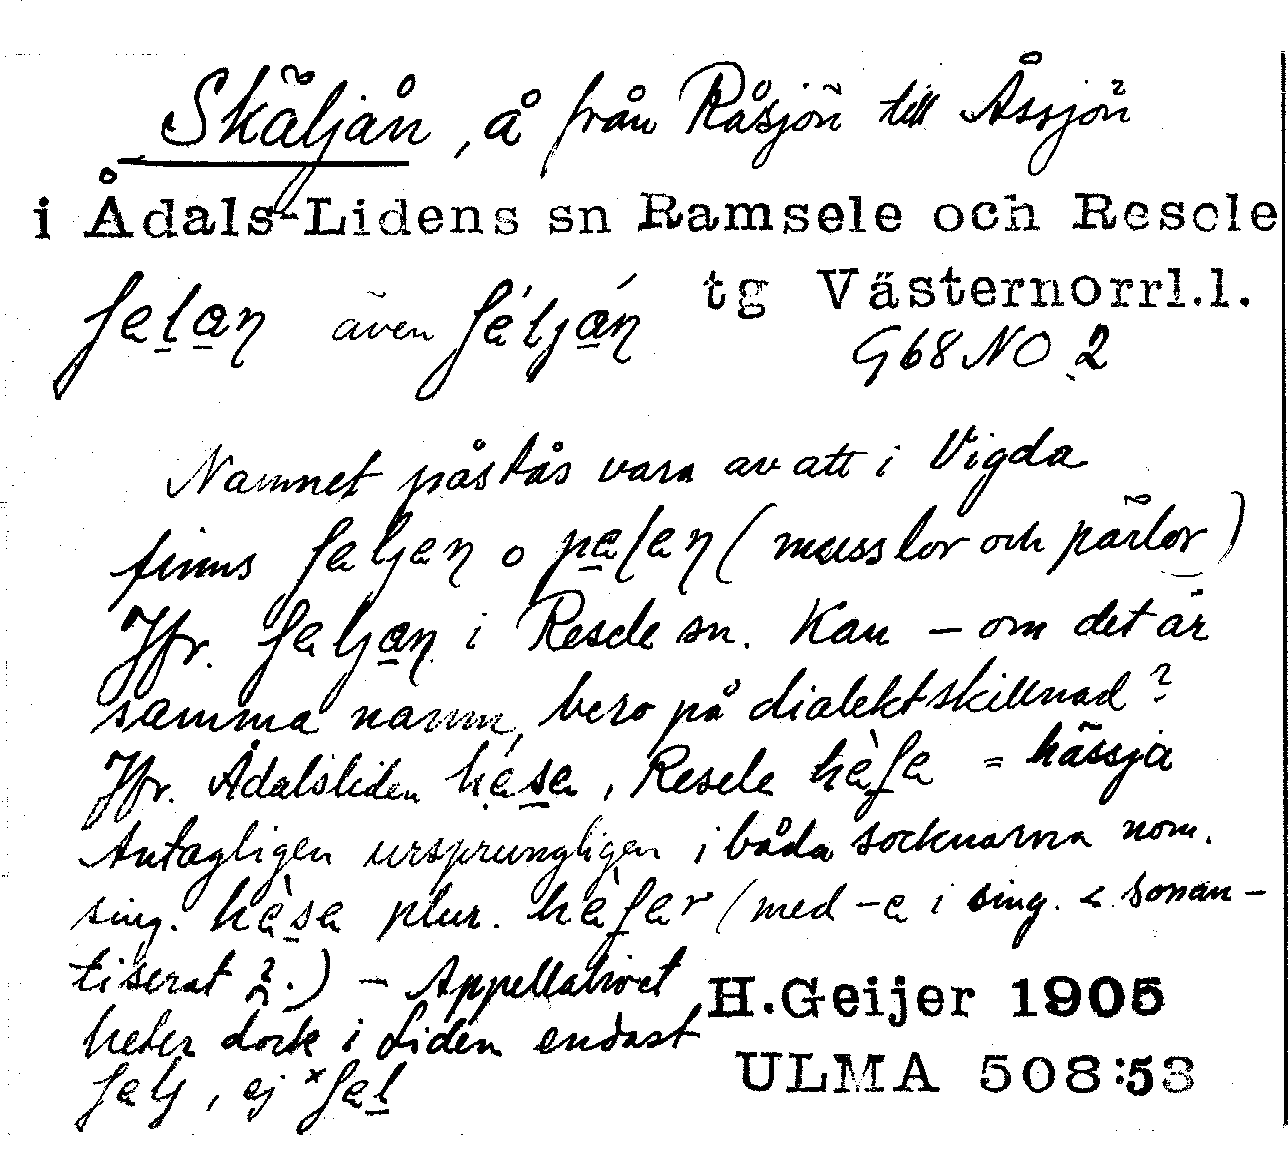 Skäljån, å från Råsjön till Åssjön
i Ådals-Lidens sn Ramsele och Resele
tg Västernorrl.l.
ʃelan även ʃélján
G68 NO 2
Namnet påstås vara av att i Vigda
finns ʃeljen o peʃen (musslor och pärlor)
Jfr. ʃeljan i Resele sn. Kan – om det är
samma namn, bero på dialektskillnad?
Jfr. Ådalsliden hése, Resele hèʃe = hässja
Antagligen ursprungligen i båda socknarna nom.
sing. hèse plur. hèʃer (med -e i sing. < sonan-
tiserat ?.) – Appellativet
heter dock i Liden endast
ʃelj, ej *ʃel
H.Geijer 1905
ULMA 508:53